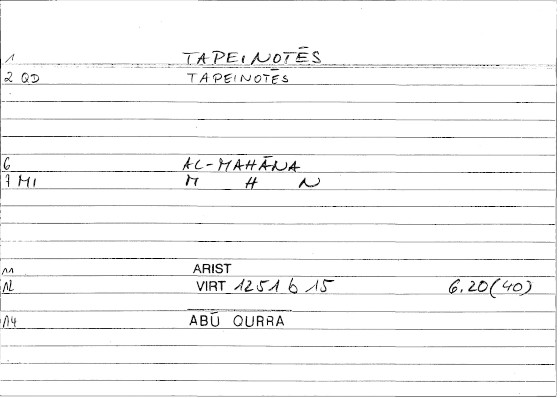 1 TAPEINOTĒS
2 QD TAPEINOTĒS
6 AL-MAHĀNA
7 MI M H N
11 ARIST
12 VIRT 1251 b 15 6.20(40)
14 ABŪ QURRA